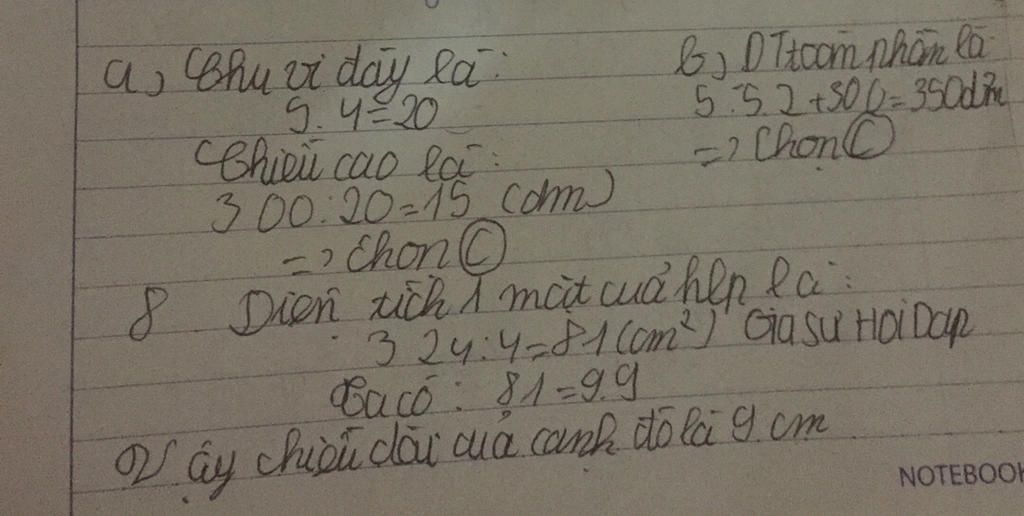 a) Chu vi dãy là:
5.4=20
Chiều cao là:
300:20=15 (dm)
=> Chọn C
b) DT toàn phần là
5.5.2+300=350dm
=> Chọn C
8 Diện tích 1 mặt cuả hlp là:
324:4=81(cm²) Gia sư Hoi Dap
Ta có: 81=9.9
Vậy chiều dài cuả cạnh đó là 9 cm
NOTEBOOK